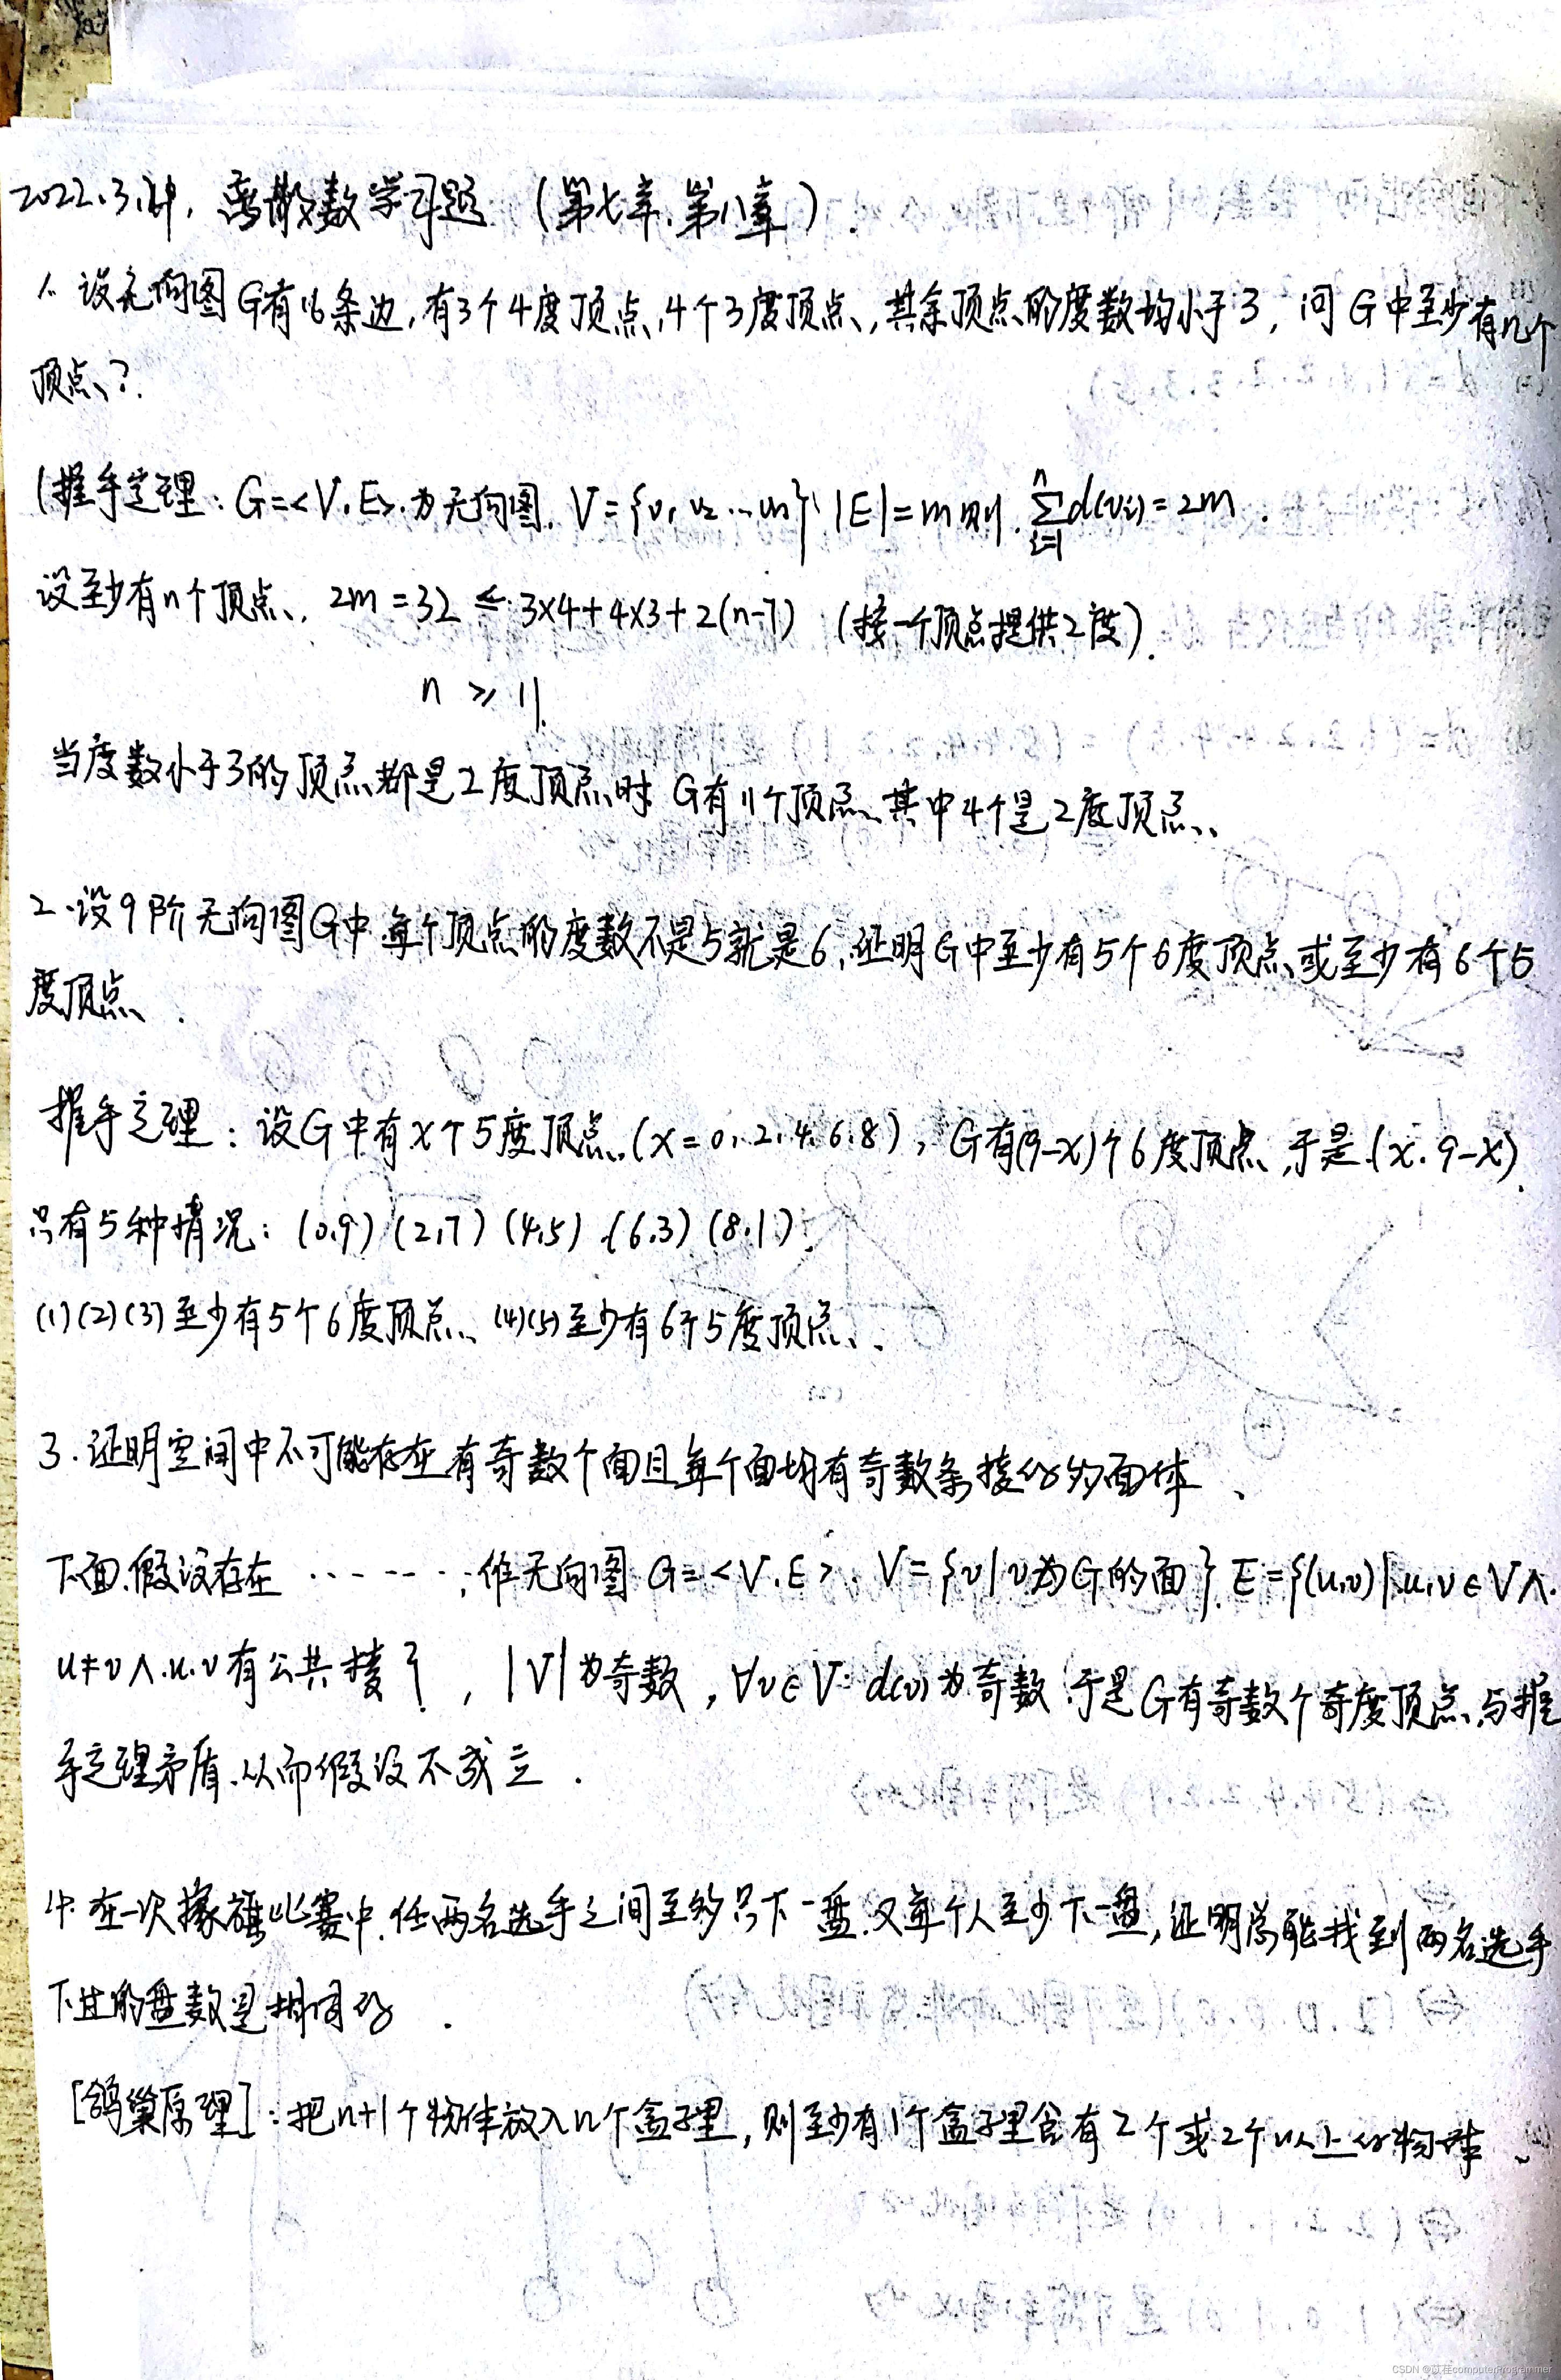 离散数学习题 (第七章.第八章).
1. 设无向图G有16条边,有3个4度顶点,4个3度顶点,其余顶点的度数均小于3, 问G中至少有几个
顶点?
握手定理: G=<V,E>为无向图. V={v1 v2 … vn} |E|=m 则 n∑i=1 d(vi)=2m.
设至少有n个顶点, 2m=32 ≤ 3×4+4×3+2(n-7) (按一个顶点提供2度).
n ≥ 11.
当度数小于3的顶点都是2度顶点时 G有11个顶点,其中4个是2度顶点.
2.设9阶无向图G中每个顶点的度数不是5就是6,证明G中至少有5个6度顶点或至少有6个5
度顶点.
握手定理: 设G中有x个5度顶点(x=0,2,4,6,8), G有(9-x)个6度顶点,于是(x.9-x)
只有5种情况: (0,9) (2,7) (4,5) (6,3) (8,1).
(1)(2)(3)至少有5个6度顶点、(4)(5)至少有6个5度顶点.
3.证明空间中不可能存在有奇数个面且每个面均有奇数条棱的多面体.
下面假设存在………,作无向图 G=<V,E>, V={v|v为G的面}, E={(u,v)|u,v∈V∧
u≠v∧u.v有公共棱}, |V|为奇数, ∀v∈V d(v)为奇数 于是G有奇数个奇度顶点,与握
手定理矛盾,从而假设不成立.
4.在一次象棋比赛中,任两名选手之间至多只下一盘.又每个人至少下一盘,证明总能找到两名选手
下过的盘数是相同的.
[鸽巢原理]:把n+1个物体放入n个盒子里,则至少有1个盒子里含有2个或2个以上的物体.
CSDN @苡荏computerProgrammer